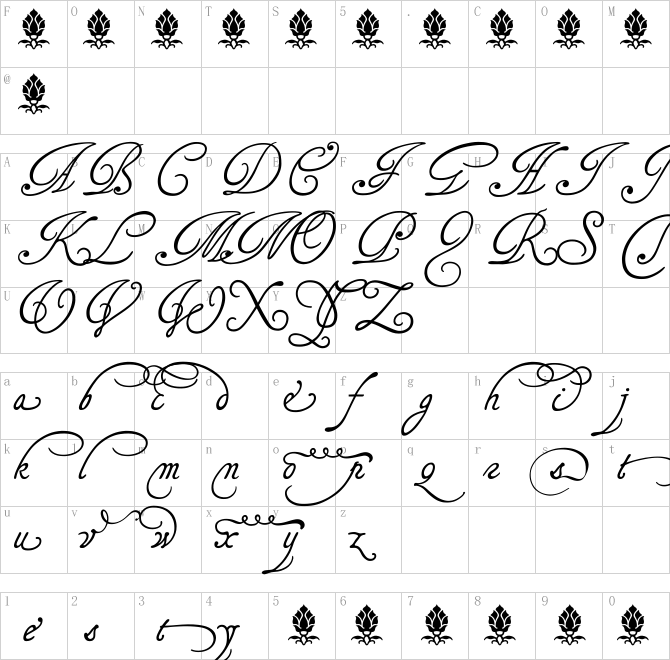 F O N T S 5 . C O M
@
A B C D E F G H I J
A B C D E F G H I J
K L M N O P Q R S T
K L M N O P Q R S T
U V W X Y Z
U V W X Y Z
a b c d e f g h i j
a b c d e f g h i j
k l m n o p q r s t
k l m n o p q r s t
u v w x y z
u v w x y z
1 2 3 4 5 6 7 8 9 0
e s t y